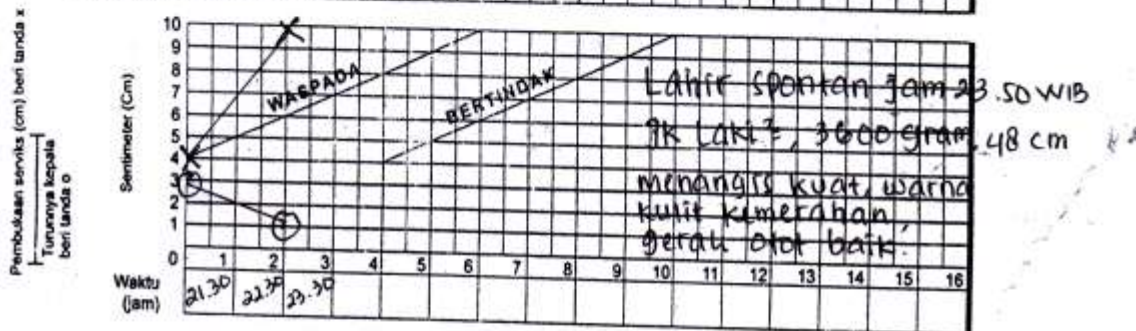 Pembukaan serviks (cm) beri tanda x
Turunnya kepala
beri tanda o
Sentimeter (Cm)
10
9
8
7
6
5
4
3
2
1
0
WASPADA
BERTINDAK
Lahir spontan jam 23.50 WIB
JK Laki², 3600 gram, 48 cm
menangis kuat, warna
kulit kemerahan,
gerak otot baik.
1 2 3 4 5 6 7 8 9 10 11 12 13 14 15 16
Waktu
(jam)
21.30 22.30 23.30